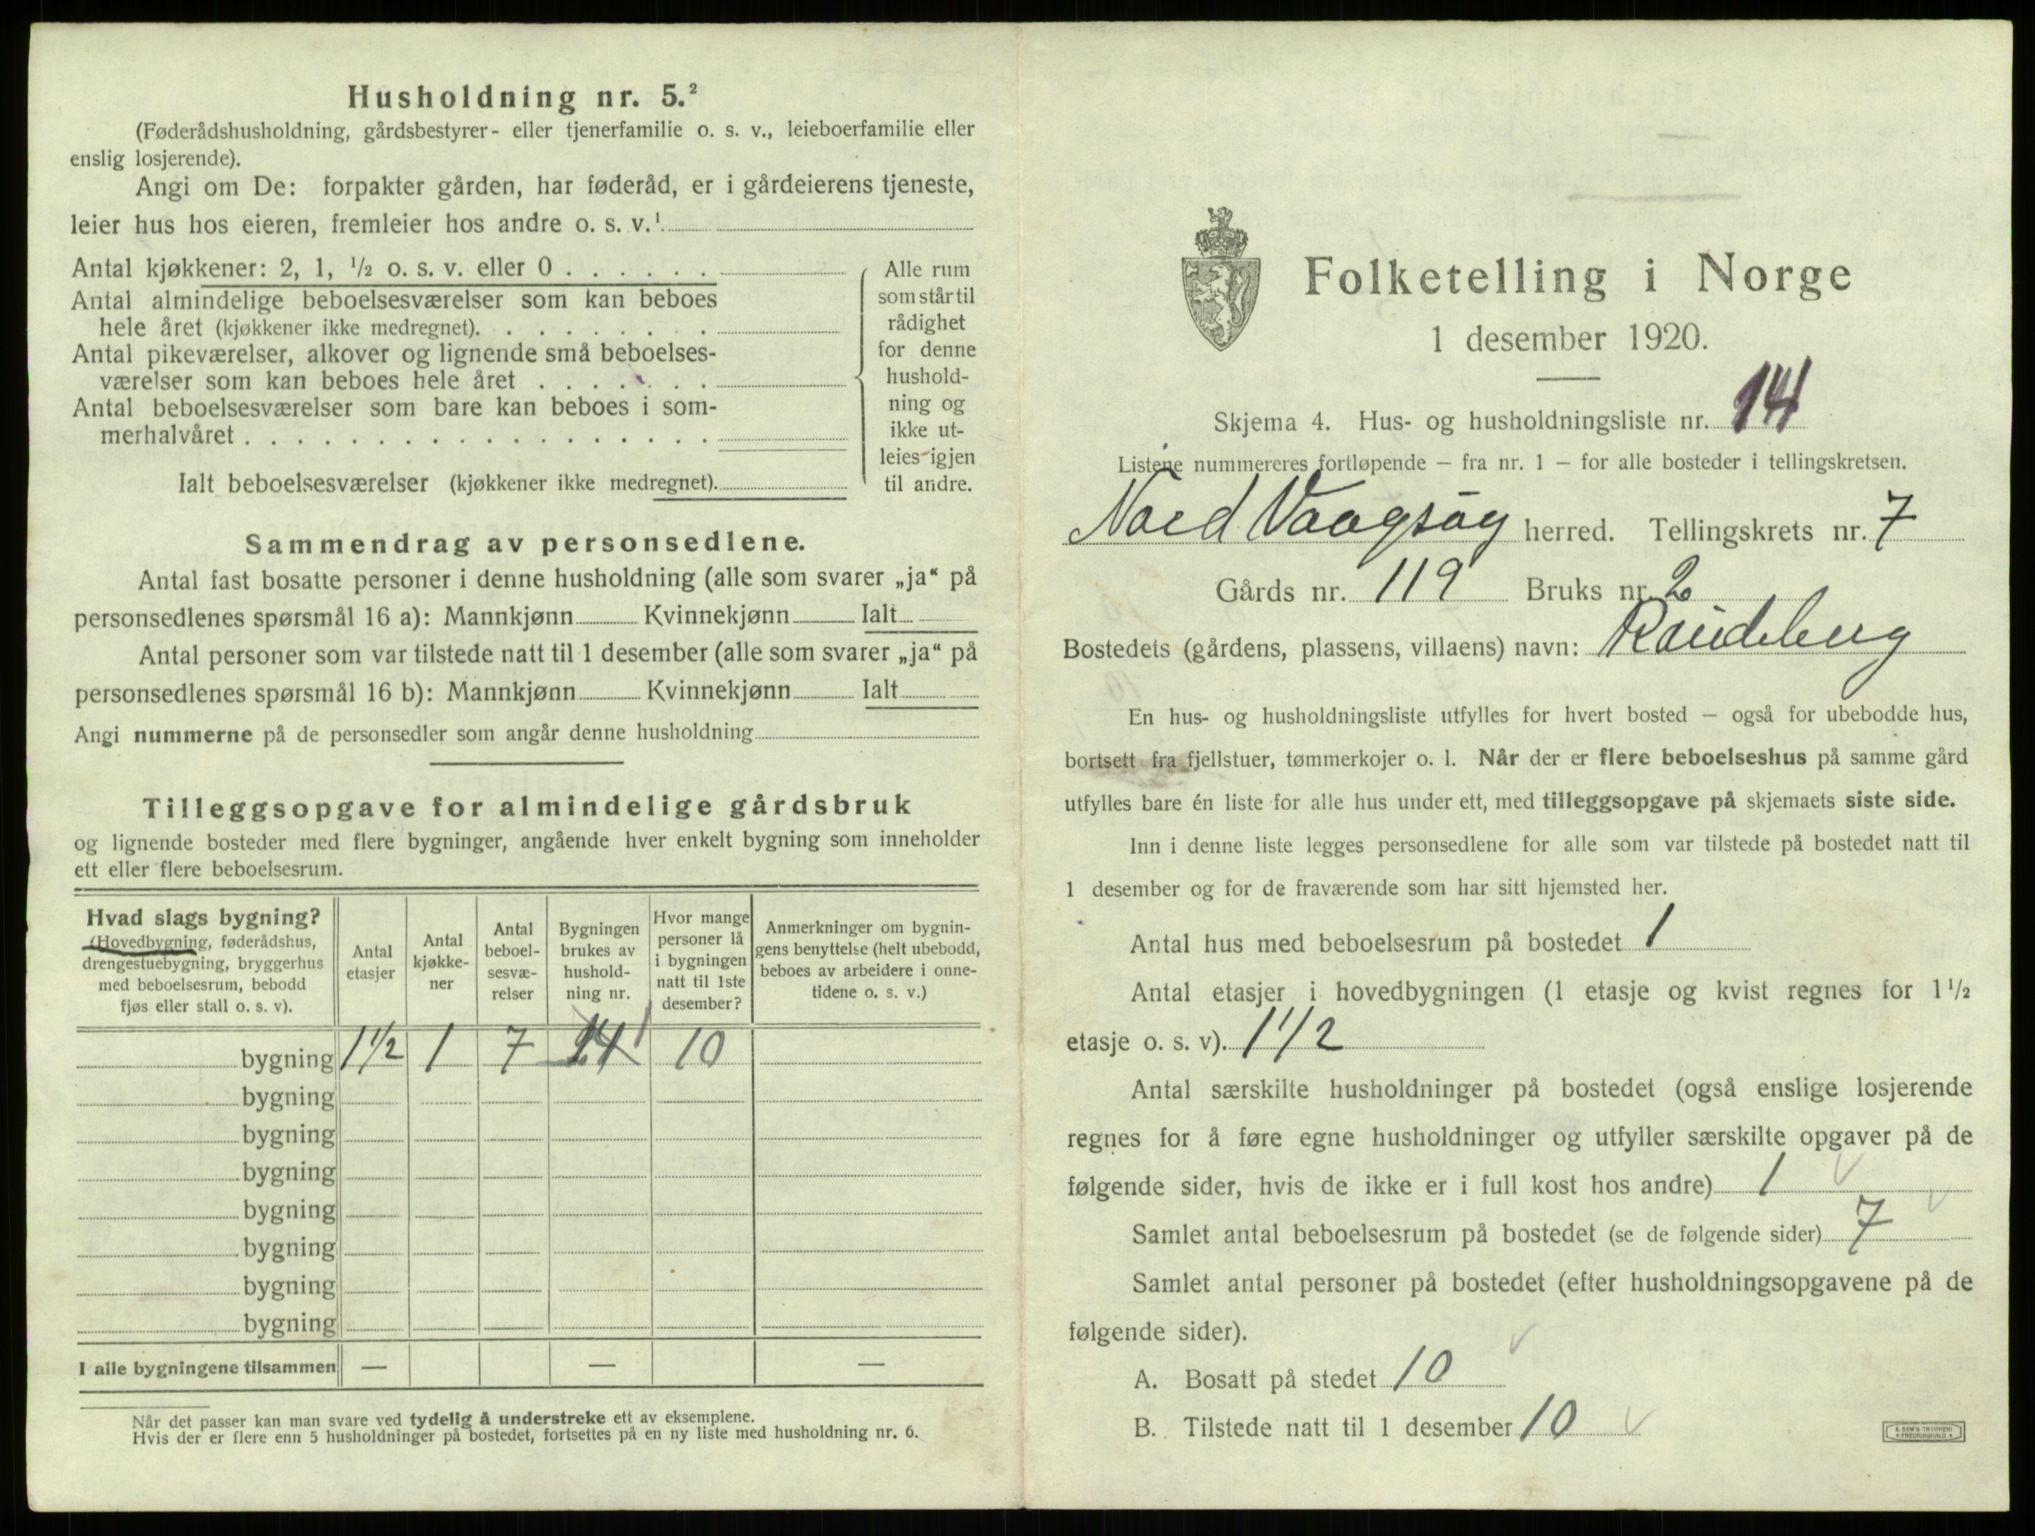 Husholdning nr. 5.²
(Føderådshusholdning, gårdsbestyrer- eller tjenerfamilie o. s. v., leieboerfamilie eller
enslig losjerende).
Angi om De: forpakter gården, har føderåd, er i gårdeierens tjeneste,
leier hus hos eieren, fremleier hos andre o. s. v.¹
Antal kjøkkener: 2, 1, ½ o. s. v. eller 0 . . . . . .
Antal almindelige beboelsesværelser som kan beboes
hele året (kjøkkener ikke medregnet). . . . . . . . .
Antal pikeværelser, alkover og lignende små beboelses-
værelser som kan beboes hele året . . . . . . .
Antal beboelsesværelser som bare kan beboes i som-
merhalvåret . . . . . . . . . . . . . . . . . .
Ialt beboelsesværelser (kjøkkener ikke medregnet).
Alle rum
som står til
rådighet
for denne
hushold-
ning og
ikke ut-
leies igjen
til andre.
Sammendrag av personsedlene.
Antal fast bosatte personer i denne husholdning (alle som svarer „ja“ på
personsedlenes spørsmål 16 a): Mannkjønn Kvinnekjønn Ialt
Antal personer som var tilstede natt til 1 desember (alle som svarer „ja“ på
personsedlenes spørsmål 16 b): Mannkjønn Kvinnekjønn Ialt
Angi nummerne på de personsedler som angår denne husholdning
Tilleggsopgave for almindelige gårdsbruk
og lignende bosteder med flere bygninger, angående hver enkelt bygning som inneholder
ett eller flere beboelsesrum.
Hvad slags bygning?
(Hovedbygning, føderådshus,
drengestuebygning, bryggerhus
med beboelsesrum, bebodd
fjøs eller stall o. s. v).
Antal
etasjer
Antal
kjøkke-
ner
Antal
beboel-
sesvæ-
relser
Bygningen
brukes av
hushold-
ning nr.
Hvor mange
personer lå
i bygningen
natt til 1ste
desember?
Anmerkninger om bygnin-
gens benyttelse (helt ubebodd,
beboes av arbeidere i onne-
tidene o. s. v.)
bygning 1½ 1 7 14 1 10
bygning
bygning
bygning
bygning
bygning
bygning
bygning
I alle bygningene tilsammen — — —
Når det passer kan man svare ved tydelig å understreke ett av eksemplene.
Hvis der er flere enn 5 husholdninger på bostedet, fortsettes på en ny liste med husholdning nr. 6.
Folketelling i Norge
1 desember 1920.
Skjema 4. Hus- og husholdningsliste nr. 14
Listene nummereres fortløpende – fra nr. 1 – for alle bosteder i tellingskretsen.
Nord Vaagsøy herred. Tellingskrets nr. 7
Gårds nr. 119 Bruks nr. 2
Bostedets (gårdens, plassens, villaens) navn: Raudeberg
En hus- og husholdningsliste utfylles for hvert bosted – også for ubebodde hus,
bortsett fra fjellstuer, tømmerkojer o. l. Når der er flere beboelseshus på samme gård
utfylles bare én liste for alle hus under ett, med tilleggsopgave på skjemaets siste side.
Inn i denne liste legges personsedlene for alle som var tilstede på bostedet natt til
1 desember og for de fraværende som har sitt hjemsted her.
Antal hus med beboelsesrum på bostedet 1
Antal etasjer i hovedbygningen (1 etasje og kvist regnes for 1½
etasje o. s. v). 1½
Antal særskilte husholdninger på bostedet (også enslige losjerende
regnes for å føre egne husholdninger og utfyller særskilte opgaver på de
følgende sider, hvis de ikke er i full kost hos andre) 1
Samlet antal beboelsesrum på bostedet (se de følgende sider) 7
Samlet antal personer på bostedet (efter husholdningsopgavene på de
følgende sider).
A. Bosatt på stedet 10
B. Tilstede natt til 1 desember 10